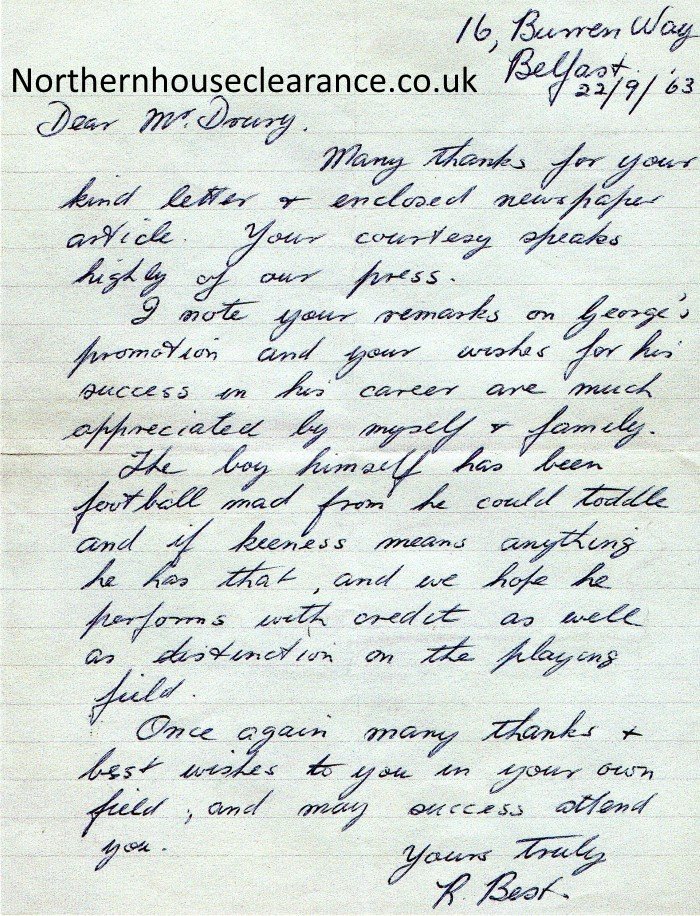 16, Burren Way
Belfast.
22/9/'63
Northernhouseclearance.co.uk
Dear Mr. Doury.
Many thanks for your
kind letter & enclosed newspaper
article. Your courtesy speaks
highly of our press.
I note your remarks on George's
promotion and your wishes for his
success in his career are much
appreciated by myself & family.
The boy himself has been
football mad from he could toddle
and if keeness means anything
he has that, and we hope he
performs with credit as well
as distinction on the playing
field.
Once again many thanks &
best wishes to you in your own
field, and may success attend
you.
Yours Truly
R. Best.